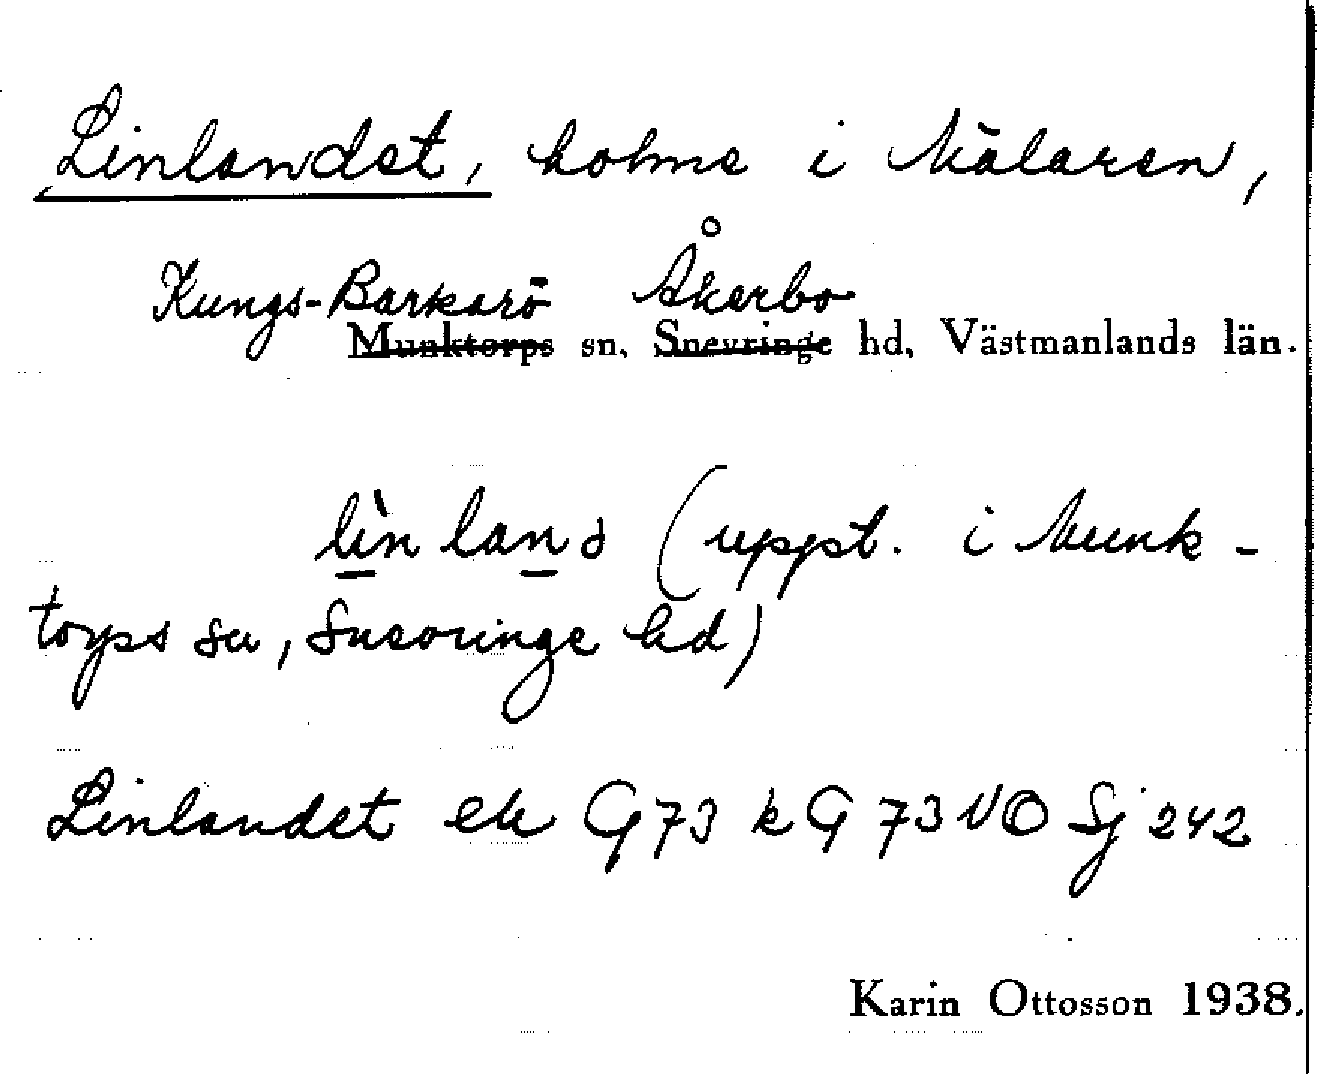 Linlandet, holme i Mälaren,
Kungs-Barkarö Åkerbo
Munktorps sn, Snevringe hd, Västmanlands län.
lìnland (uppt. i Munk-
torps sn, Snevringe hd)
Linlandet ek G73 k G 73 NO Sj 242
Karin Ottosson 1938.